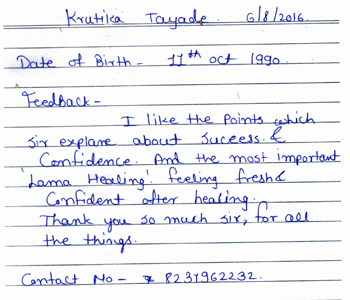 Krutika Tayade. 6/8/2016.
Date of Birth - 11th oct 1990
Feedback -
I like the Points which
sir explane about success. &
Confidence. And the most important
'Lama Healing'. feeling fresh &
Confident after healing.
Thank you so much sir, for all
the things.
Contact No - 8237962232.